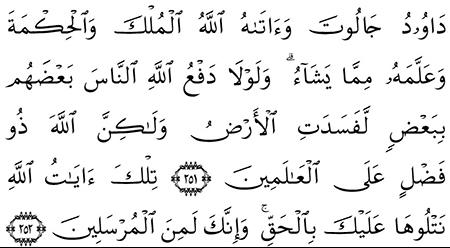 دَاوُۥدُ جَالُوتَ وَءَاتَىٰهُ ٱللَّهُ ٱلْمُلْكَ وَٱلْحِكْمَةَ
وَعَلَّمَهُۥ مِمَّا يَشَآءُ ۗ وَلَوْلَا دَفْعُ ٱللَّهِ ٱلنَّاسَ بَعْضَهُم
بِبَعْضٍ لَّفَسَدَتِ ٱلْأَرْضُ وَلَٰكِنَّ ٱللَّهَ ذُو
فَضْلٍ عَلَى ٱلْعَٰلَمِينَ ﴿٢٥١﴾ تِلْكَ ءَايَٰتُ ٱللَّهِ
نَتْلُوهَا عَلَيْكَ بِٱلْحَقِّ ۚ وَإِنَّكَ لَمِنَ ٱلْمُرْسَلِينَ ﴿٢٥٢﴾